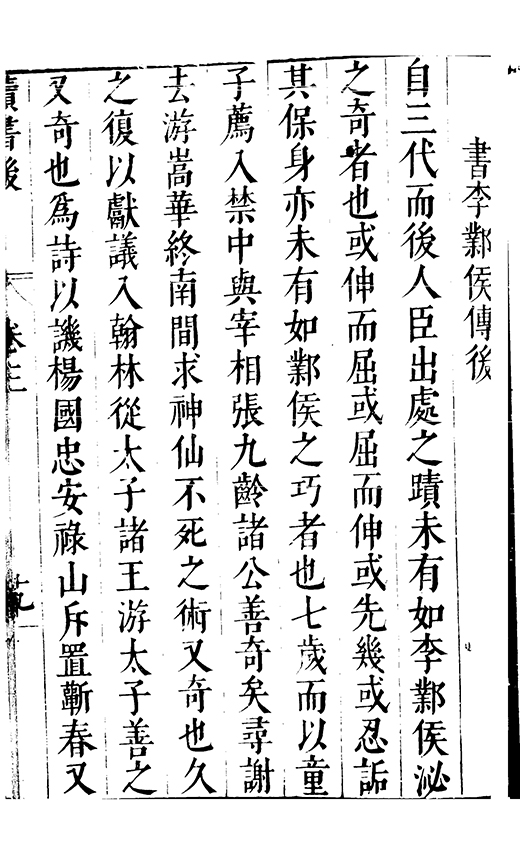 書李鄴侯傳後
自三代而後人臣出處之蹟未有如李鄴侯泌
之奇者也或伸而屈或屈而伸或先幾或忍詬
其保身亦未有如鄴侯之巧者也七歲而以童
子薦入禁中與宰相張九齡諸公善奇矣尋謝
去游嵩華終南間求神仙不死之術又奇也久
之復以獻議入翰林從太子諸王游太子善之
又奇也為詩以譏楊國忠安祿山斥置蘄春又
讀書後
卷三